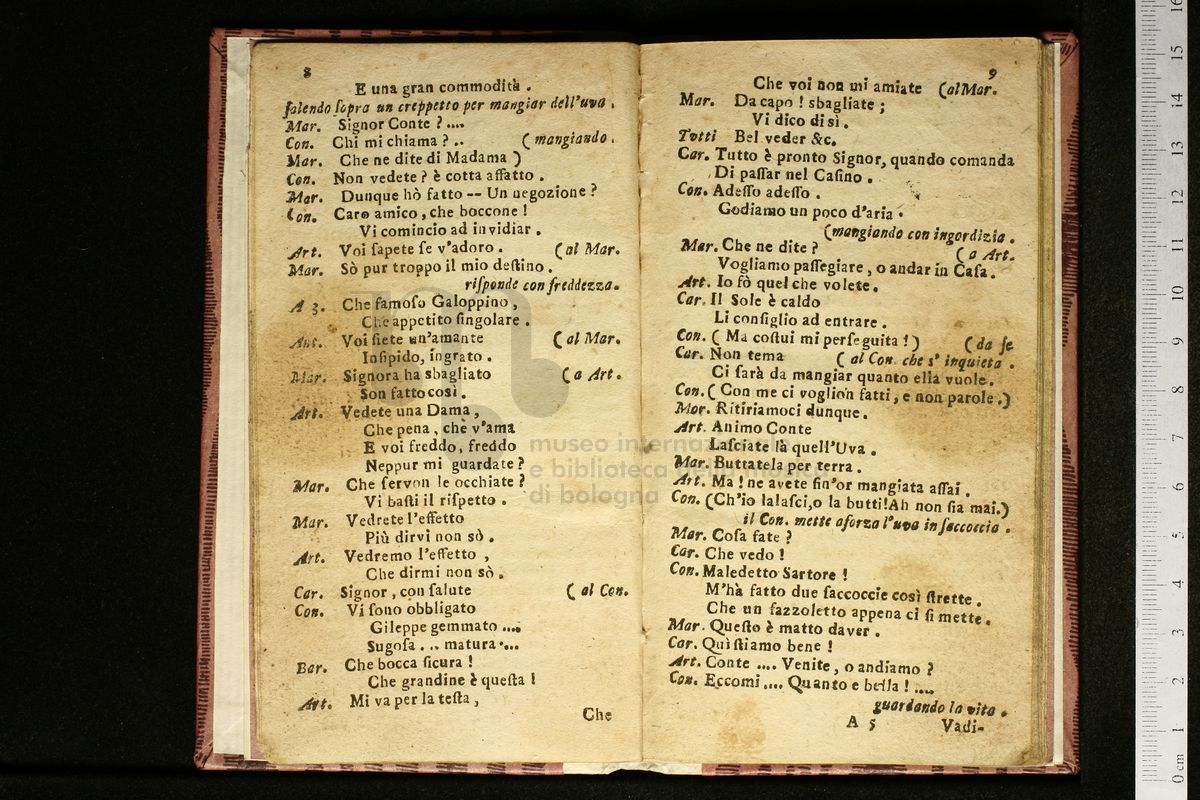 8
E una gran commodità .
salendo sopra un creppetto per mangiar dell'uva .
Mar. Signor Conte ? ....
Con. Chi mi chiama ? .. ( mangiando .
Mar. Che ne dite di Madama )
Con. Non vedete ? è cotta affatto .
Mar. Dunque hò fatto -- Un negozione ?
Con. Caro amico , che boccone !
Vi comincio ad invidiar .
Art. Voi sapete se v'adoro . ( al Mar.
Mar. Sò pur troppo il mio destino .
risponde con freddezza.
A 3. Che famoso Galoppino ,
Che appetito singolare .
Art. Voi siete un'amante ( al Mar.
Insipido, ingrato .
Mar. Signora ha sbagliato ( a Art.
Son fatto così .
Art. Vedete una Dama ,
Che pena , chè v'ama
E voi freddo, freddo
Neppur mi guardate ?
Mar. Che servon le occhiate ?
Vi basti il rispetto .
Mar. Vedrete l'effetto
Più dirvi non sò .
Art. Vedremo l'effetto ,
Che dirmi non sò .
Car. Signor , con salute ( al Con.
Con. Vi sono obbligato
Gileppe gemmato ....
Sugosa . .. matura ....
Bar. Che bocca sicura !
Che grandine è questa !
Art. Mi va per la testa ,
Che
9
Che voi non mi amiate (al Mar.
Mar. Da capo ! sbagliate ;
Vi dico di sì .
Tutti Bel veder &c.
Car. Tutto è pronto Signor, quando comanda
Di passar nel Casino .
Con. Adesso adesso .
Godiamo un poco d'aria .
(mangiando con ingordizia .
Mar. Che ne dite ? ( a Art.
Vogliamo passegiare , o andar in Casa .
Art. Io fò quel che volete .
Car. Il Sole è caldo
Li consiglio ad entrare .
Con. ( Ma costui mi perseguita ! ) ( da se
Car. Non tema ( al Con. che s' inquieta .
Ci sarà da mangiar quanto ella vuole.
Con. ( Con me ci voglion fatti , e non parole .)
Mar. Ritiriamoci dunque .
Art. Animo Conte
Lasciate là quell'Uva .
Mar. Buttatela per terra .
Art. Ma ! ne avete fin'or mangiata assai .
Con. (Ch'io la lasci,o la butti!Ah non sia mai.)
il Con. mette a forza l'uva in saccoccia .
Mar. Cosa fate ?
Car. Che vedo !
Con. Maledetto Sartore !
M'ha fatto due saccoccie così strette .
Che un fazzoletto appena ci si mette .
Mar. Questo è matto daver .
Car. Quì stiamo bene !
Art. Conte .... Venite , o andiamo ?
Con. Eccomi .... Quanto e bella ! ....
guardando la vita .
A 5 Vadi-
museo internazionale
e biblioteca della musica
di bologna
0 cm 1 2 3 4 5 6 7 8 9 10 11 12 13 14 15 16